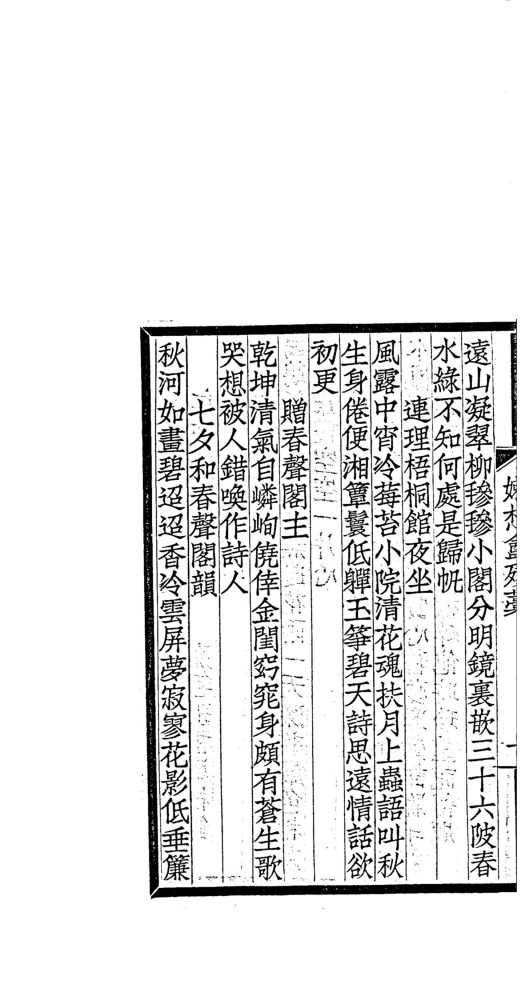 遠山凝翠柳毿毿小閣分明鏡裏嵌三十六陂春
水綠不知何處是歸帆
連理梧桐館夜坐
風露中宵冷莓苔小院清花魂扶月上蟲語叫秋
生身倦便湘簟鬟低嚲玉箏碧天詩思遠情話欲
初更
贈春聲閣主
乾坤清氣自嶙峋僥倖金閨窈窕身頗有蒼生歌
哭想被人錯喚作詩人
七夕和春聲閣韻
秋河如畫碧迢迢香冷雲屏夢寂寥花影低垂簾